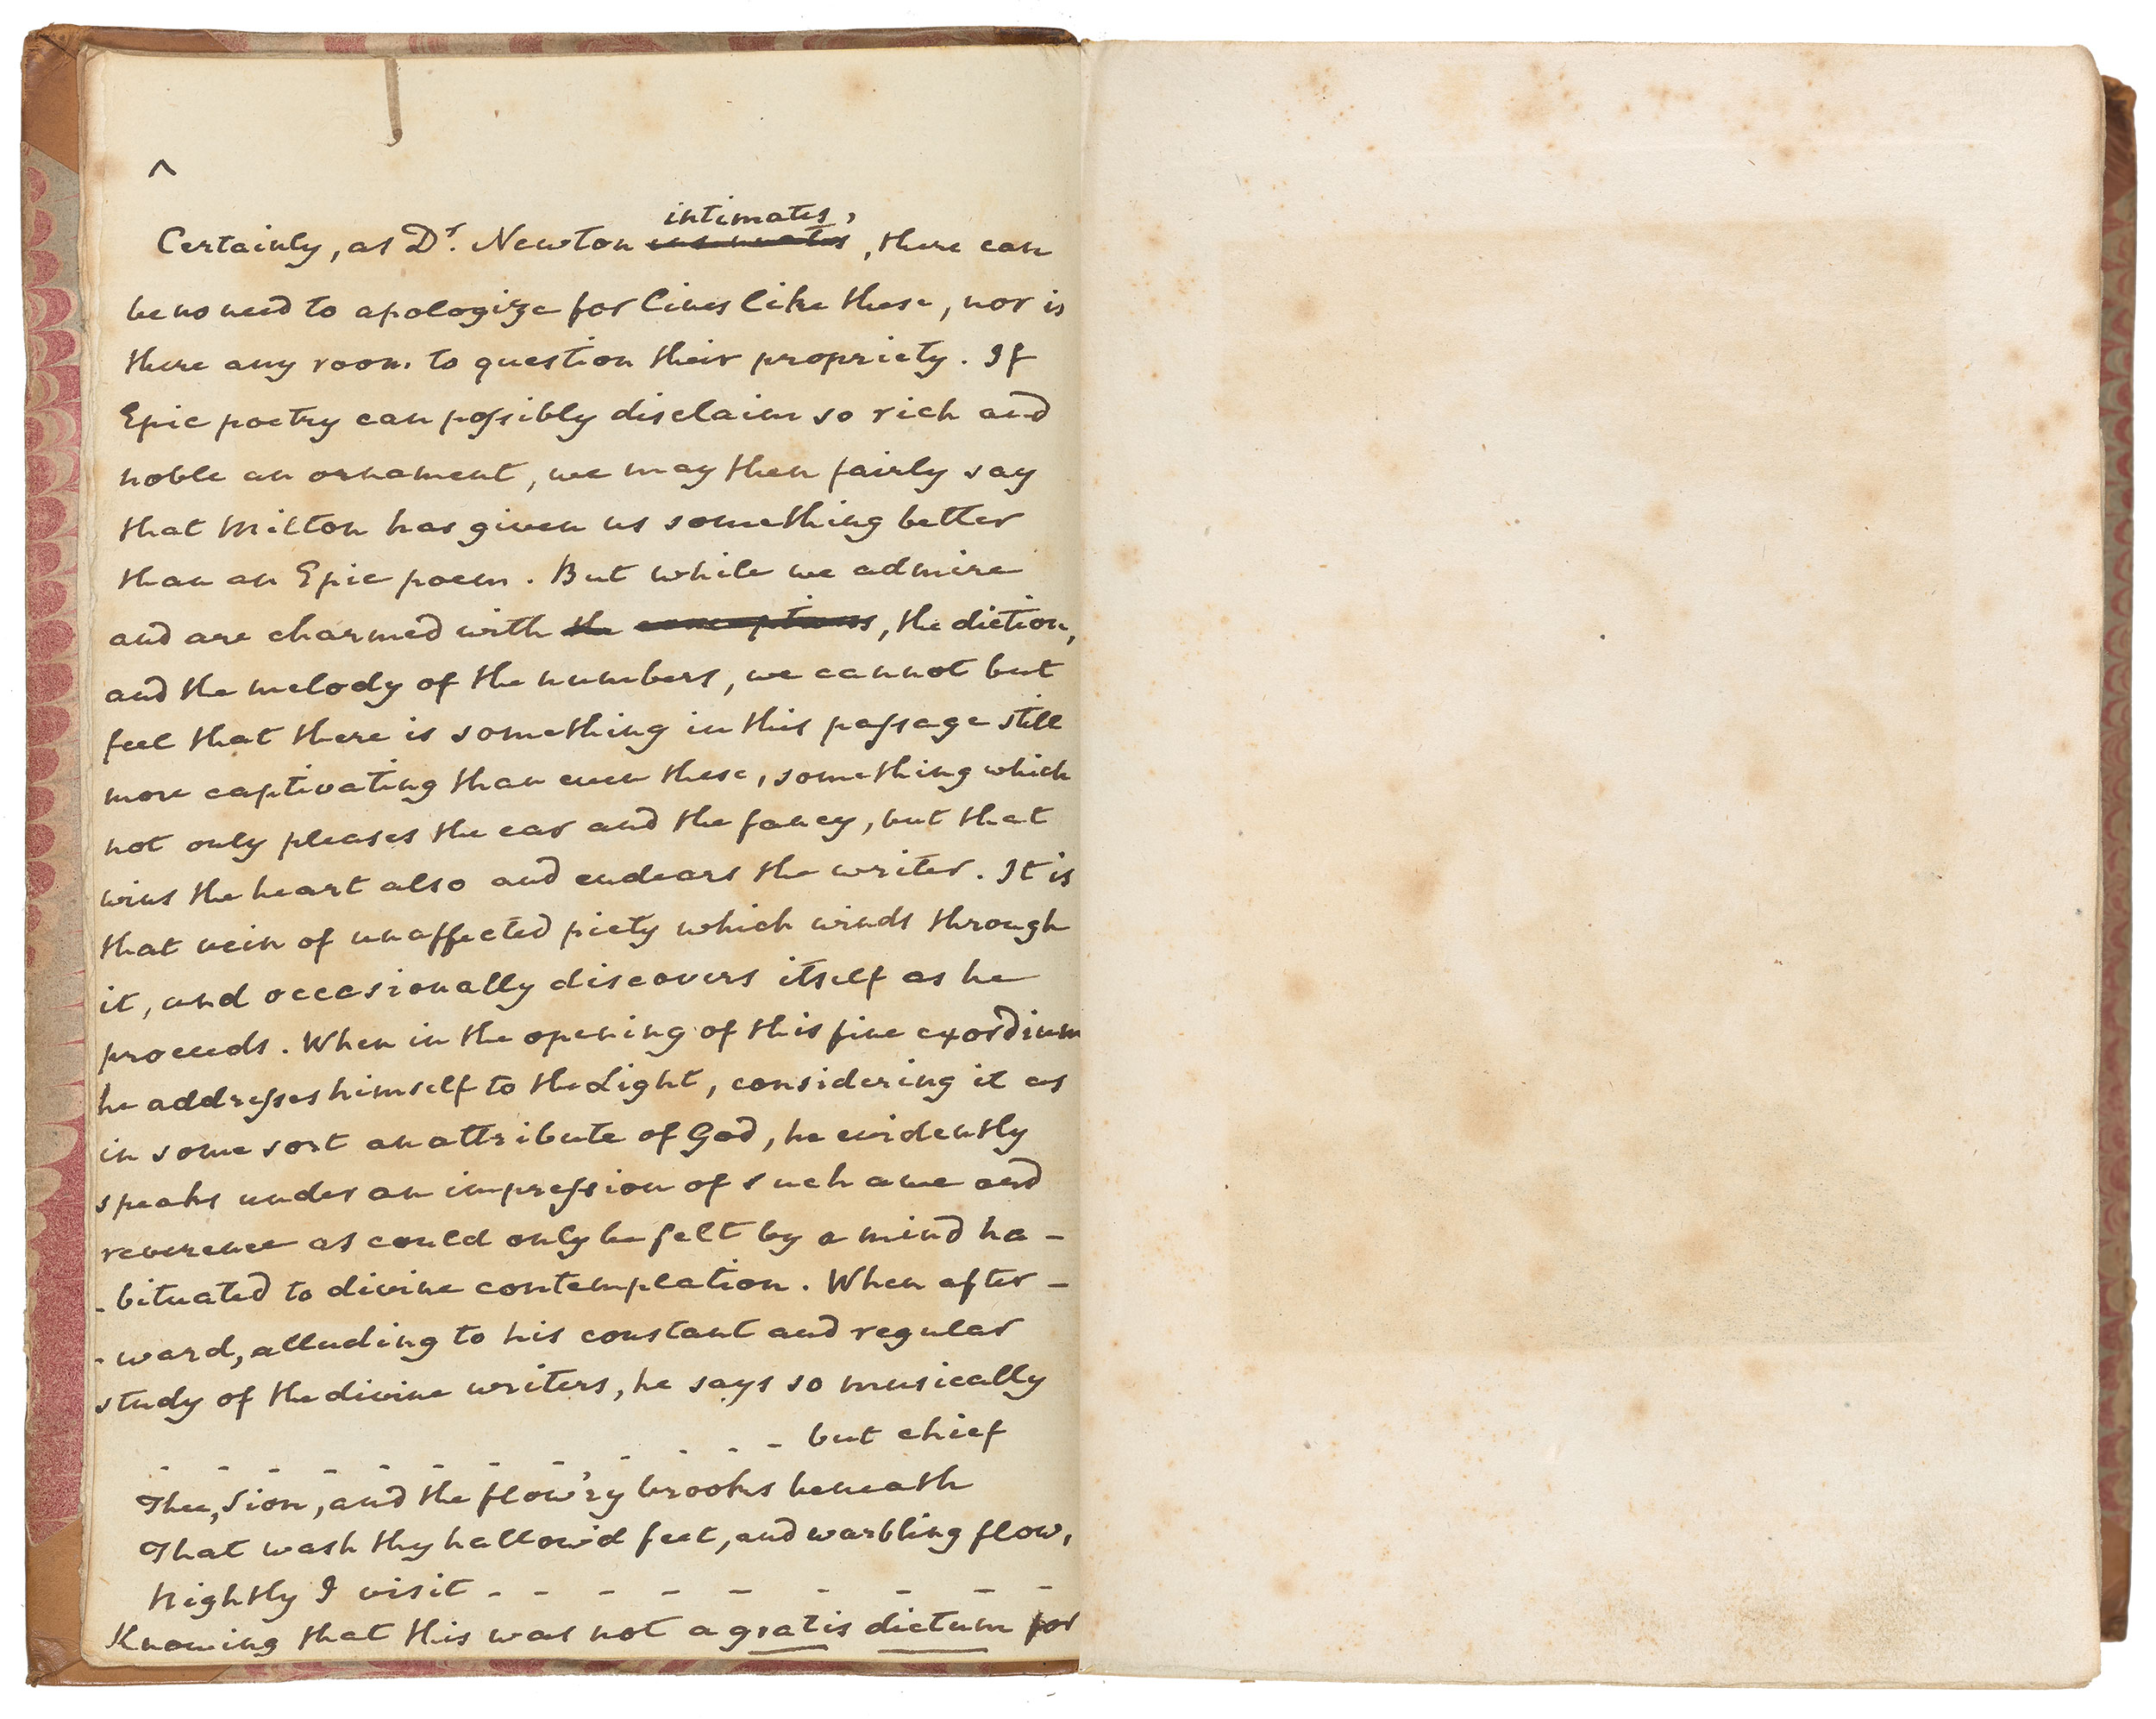 ^
intimates,
Certainly, as Dr. Newton insinuates, there can
be no need to apologize for lines like these, nor is
there any room to question their propriety. If
Epic poetry can poſsibly disclaim so rich and
noble an ornament, we may then fairly say
that Milton has given us something better
than an Epic poem. But while we admire
and are charmed with the conceptions, the diction,
and the melody of the numbers, we cannot but
feel that there is something in this paſsage still
more captivating than even these, something which
not only pleases the ear and the fancy, but that
wins the heart also and endears the writer. It is
that vein of unaffected piety which winds through
it, and occasionally discovers itself as he
proceeds. When in the opening of this fine exordium
he addreſses himself to the Light, considering it as
in some sort an attribute of God, he evidently
speaks under an impreſsion of such awe and
reverence as could only be felt by a mind ha-
-bituated to divine contemplation. When after-
-ward, alluding to his constant and regular
study of the divine writers, he says so musically
- - - - - - - - - - - - but chief
Thee, Sion, and the flow'ry brooks beneath
That wash thy hallow'd feet, and warbling flow,
Nightly I visit - - - - - - - - -
Knowing that this was not a gratis dictum for